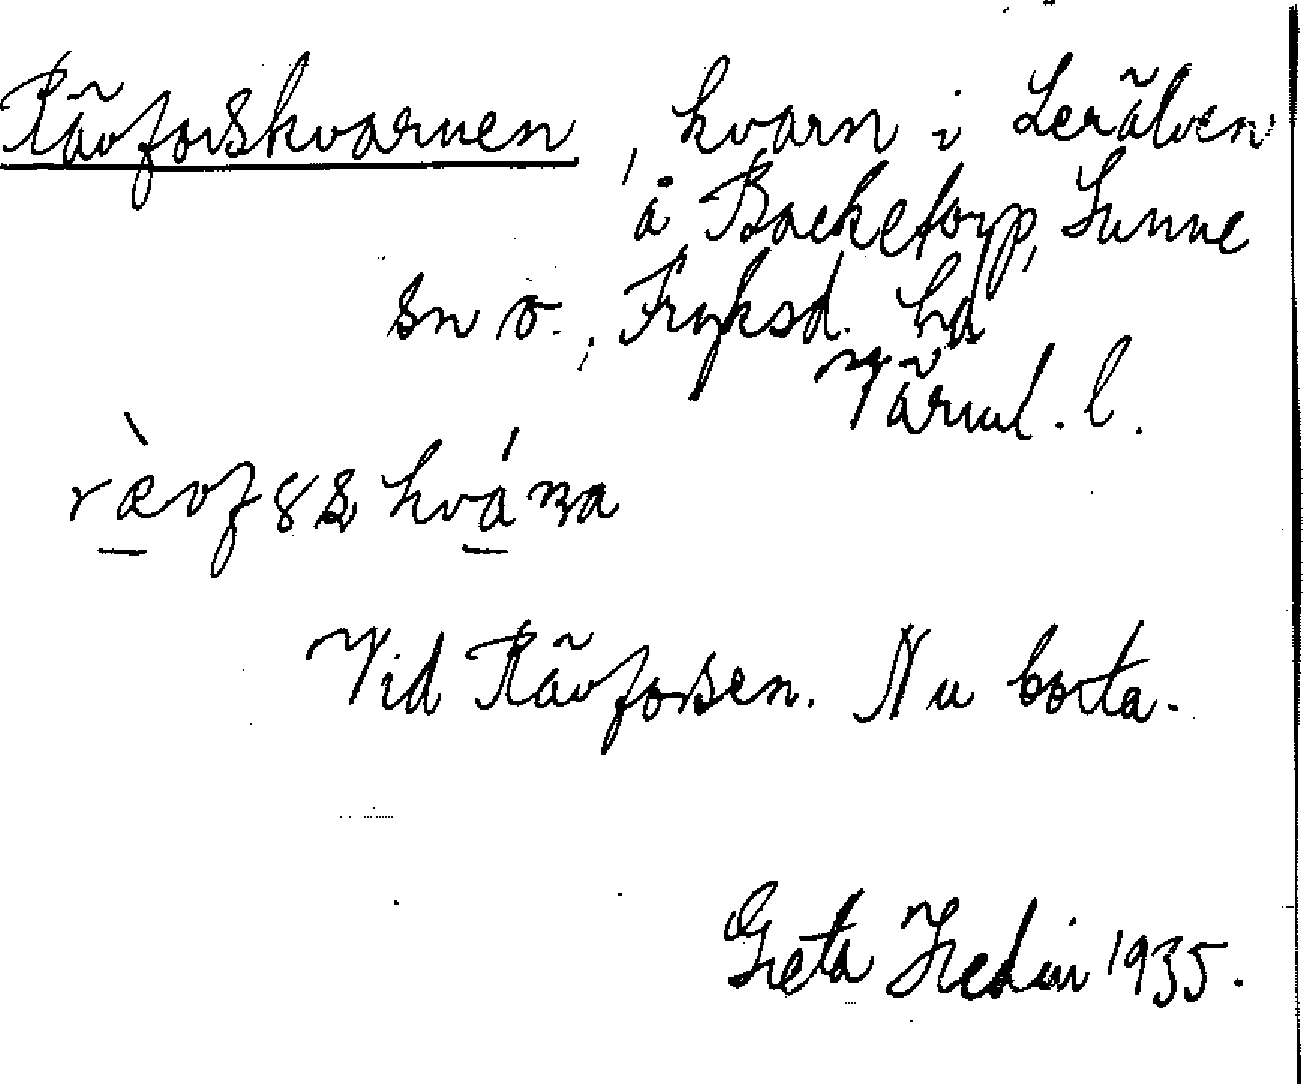 Rävforskvarnen, kvarn i Lerälven
å Backetorp, Sunne
sn o., Fryksd. hd
Värml. l.
Vid Rävforsen. Nu borta.
Greta Hedin 1935.